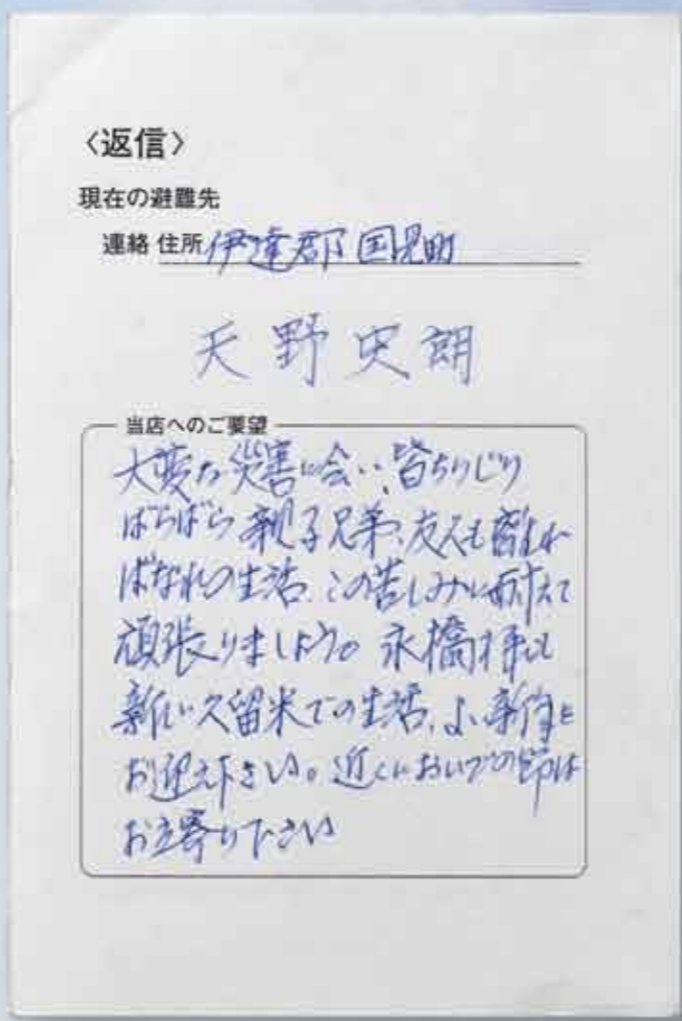 〈返信〉
現在の避難先
連絡 住所 伊達郡 国見町
天野史朗
当店へのご要望
大変な災害に会い、皆ちりじり
ばらばら親子兄弟、友人も離れ
ばなれの生活、この苦しみに耐えて
頑張りましょう。永橋様も
新しい久留米での生活、よい新年を
お迎え下さい。近くにおいでの節は
お立寄り下さい